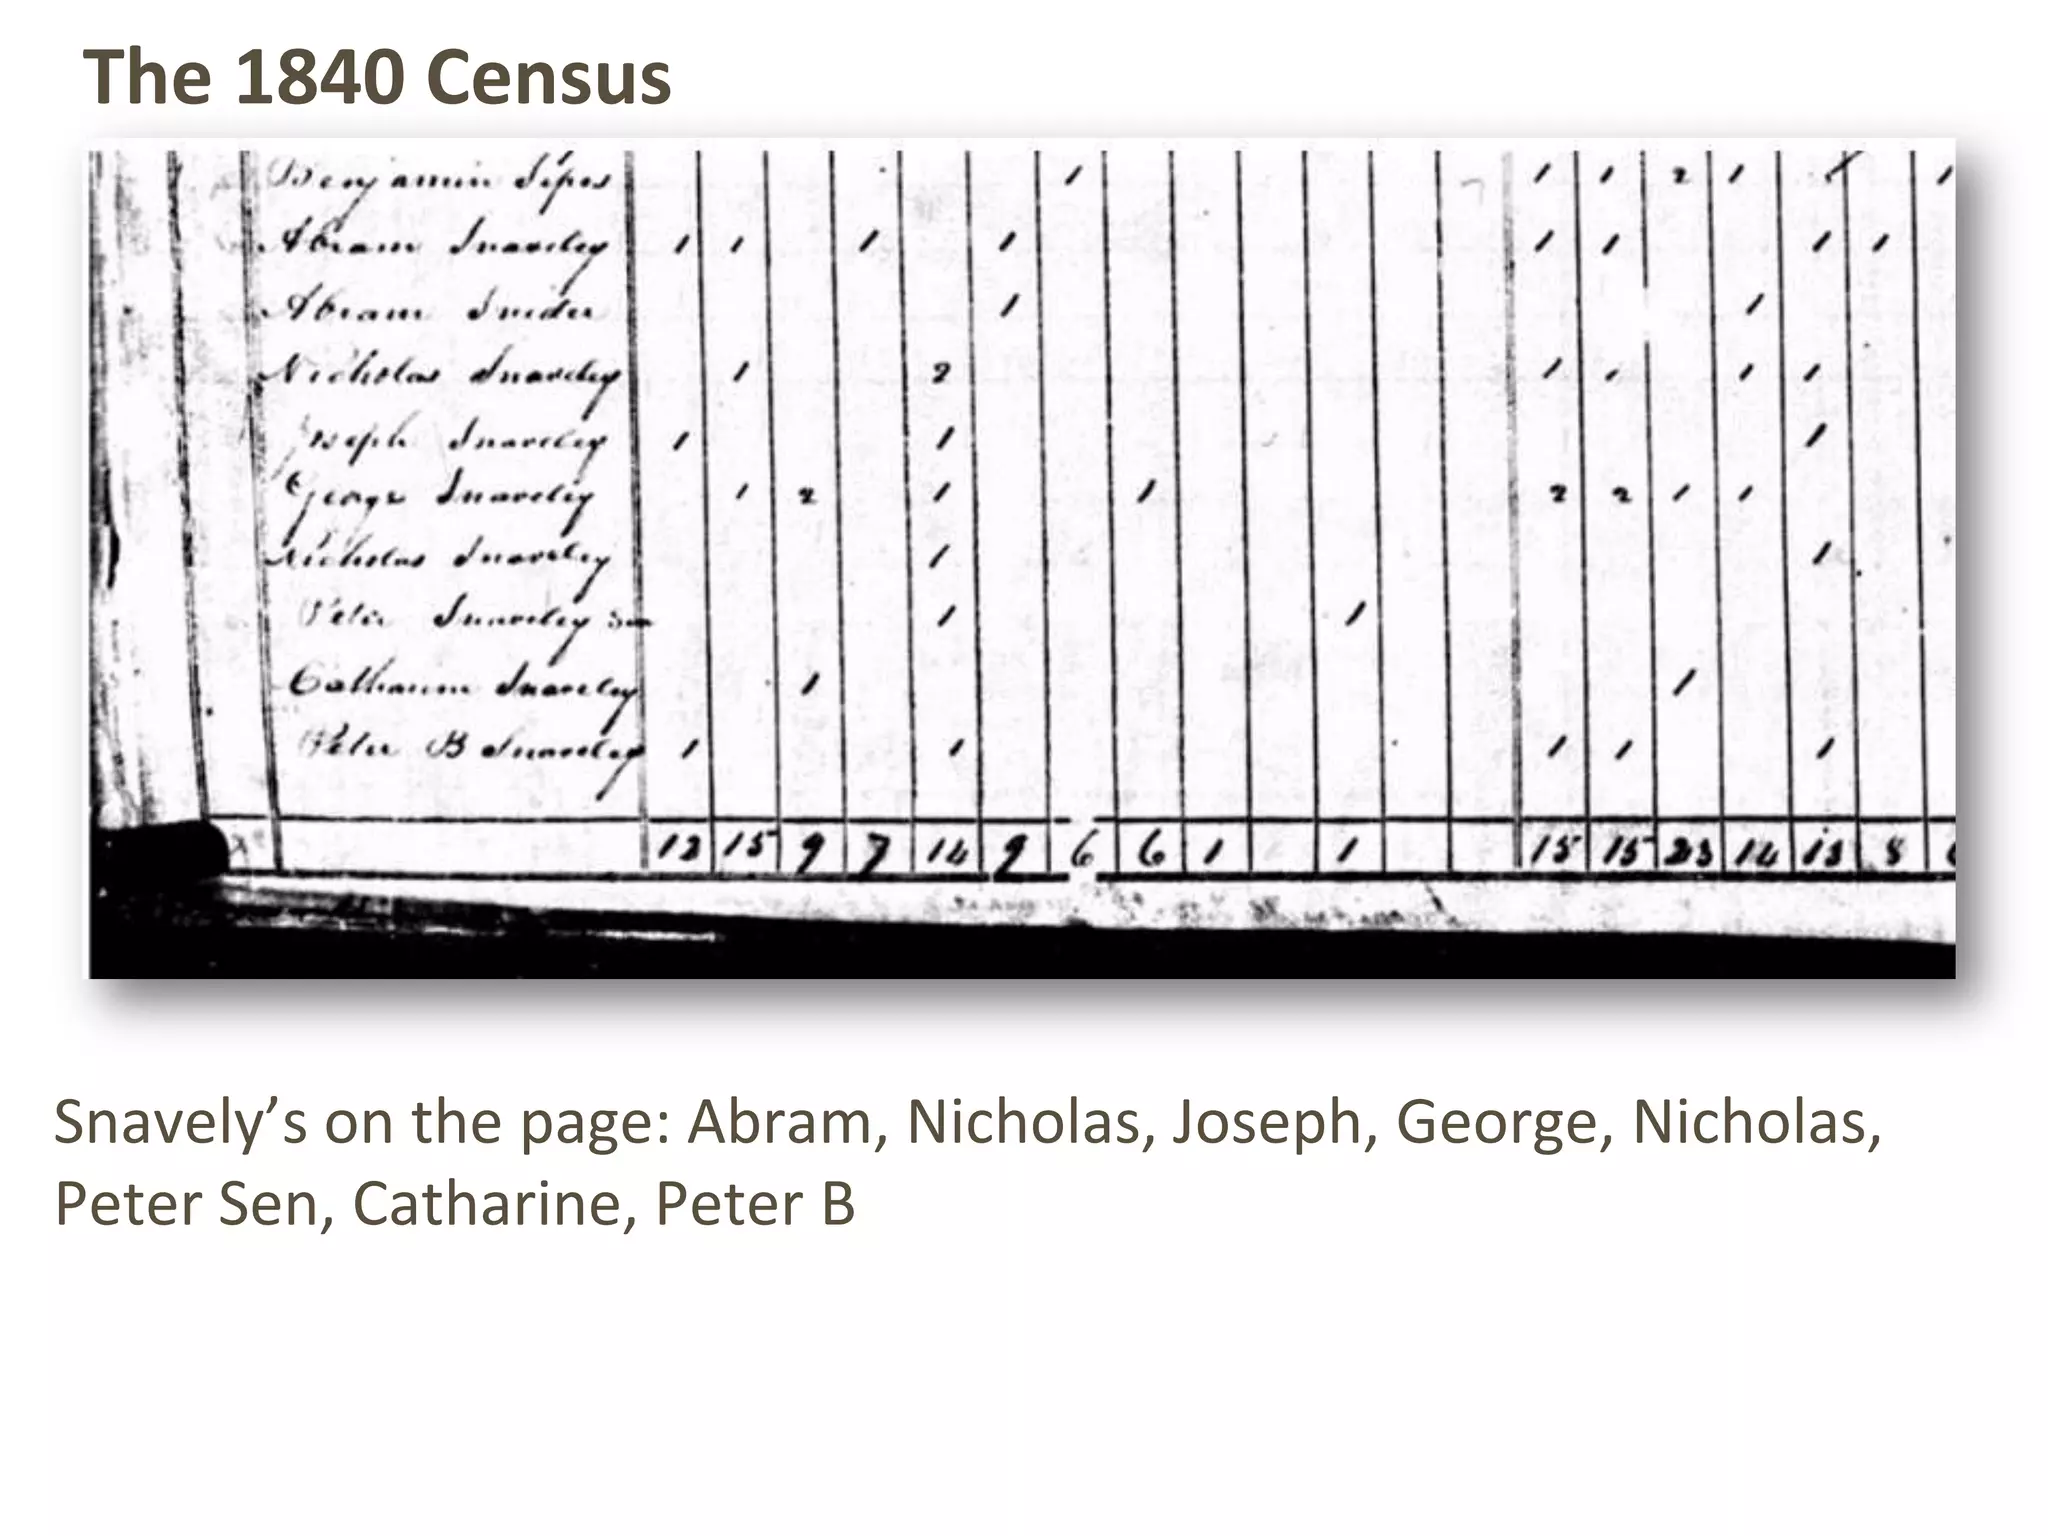 The 1840 Census
Benjamin Sipes 1 1 1 2 1 1 1
Abram Snaveley 1 1 1 1 1 1 1 1
Abram Snider 1 1
Nicholas Snaveley 1 2 1 1 1 1
Joseph Snaveley 1 1 1
George Snaveley 1 2 1 1 2 2 1 1
Nicholas Snaveley 1 1
Peter Snaveley Sen 1 1
Catharine Snaveley 1 1
Peter B Snaveley 1 1 1 1 1
12 15 9 7 14 9 6 6 1 1 15 15 23 14 13 8
Snavely’s on the page: Abram, Nicholas, Joseph, George, Nicholas,
Peter Sen, Catharine, Peter B